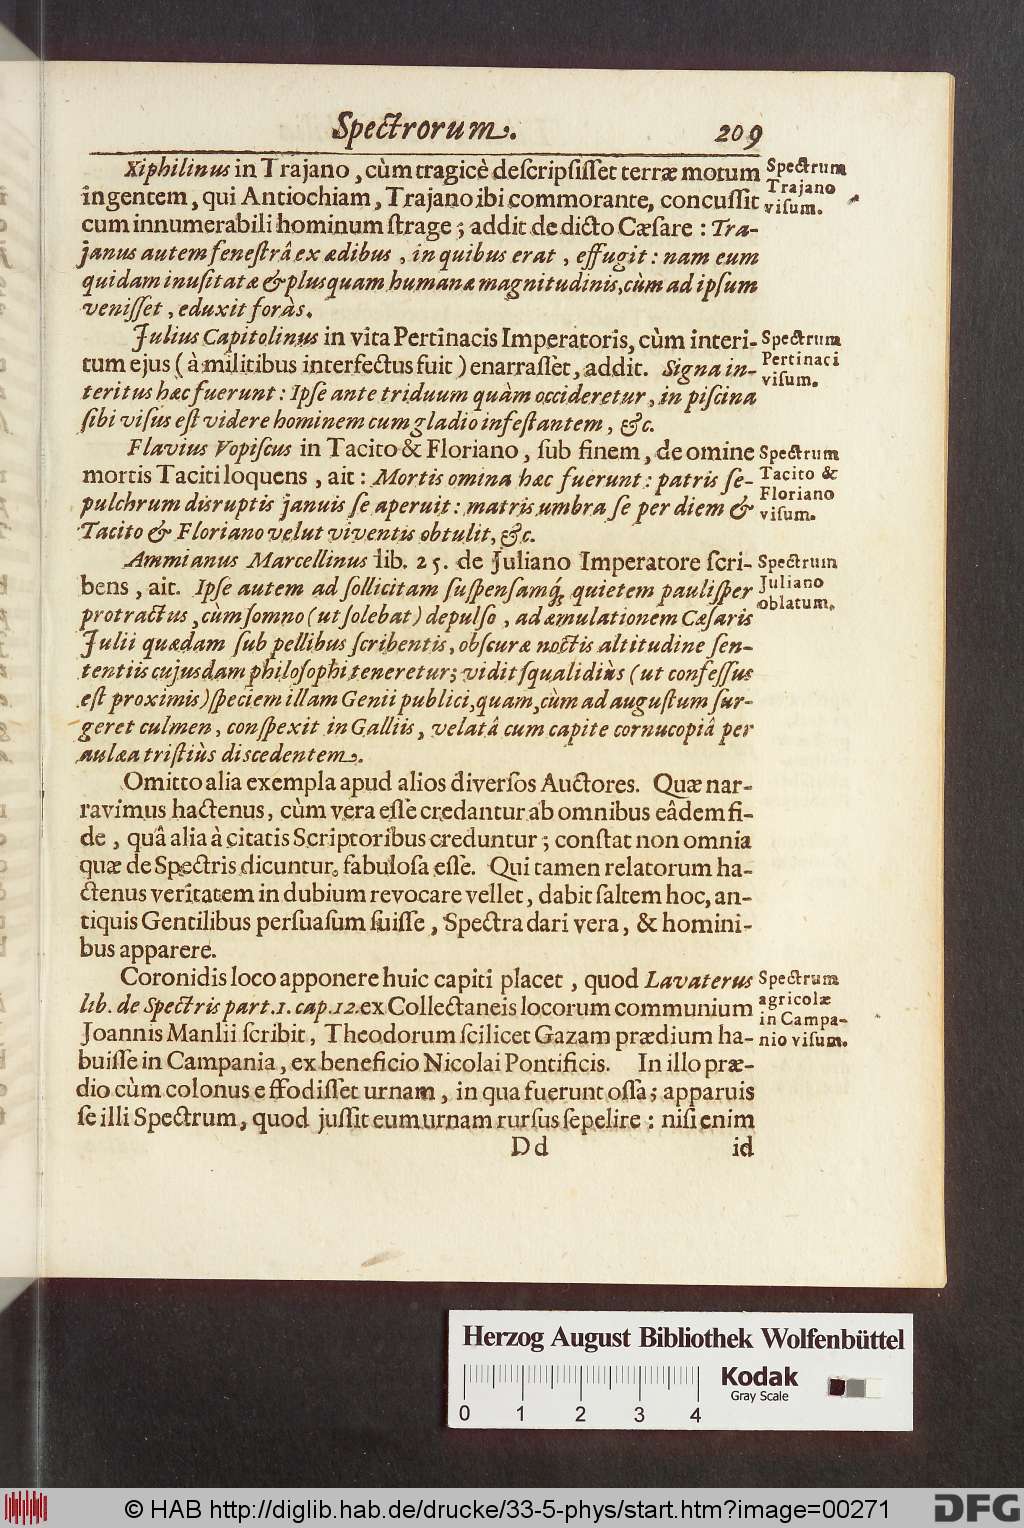 Spectrorum. 209
Xiphilinus in Trajano, cùm tragicè descripsisset terræ motum
ingentem, qui Antiochiam, Trajano ibi commorante, concussit
cum innumerabili hominum strage; addit de dicto Cæsare: Tra-
janus autem fenestrâ ex ædibus, in quibus erat, effugit: nam eum
quidam inusitatæ & plusquam humanæ magnitudinis, cùm ad ipsum
venisset, eduxit foràs.
Spectrum
Trajano
visum.
Julius Capitolinus in vita Pertinacis Imperatoris, cùm interi-
tum ejus (à militibus interfectus fuit) enarrasset, addit. Signa in-
teritus hæc fuerunt: Ipse ante triduum quàm occideretur, in piscina
sibi visus est videre hominem cum gladio infestantem, &c.
Spectrum
Pertinaci
visum.
Flavius Vopiscus in Tacito & Floriano, sub finem, de omine
mortis Taciti loquens, ait: Mortis omina hæc fuerunt: patris se-
pulchrum disruptis januis se aperuit: matris umbra se per diem &
Tacito & Floriano velut viventis obtulit, &c.
Spectrum
Tacito &
Floriano
visum.
Ammianus Marcellinus lib. 25. de Juliano Imperatore scri-
bens, ait. Ipse autem ad sollicitam suspensamq́; quietem paulisper
protractus, cùm somno (ut solebat) depulso, ad æmulationem Cæsaris
Julii quædam sub pellibus scribentis, obscuræ noctis altitudine sen-
tentiis cujusdam philosophi teneretur; vidit squalidiùs (ut confessus
est proximis) speciem illam Genii publici, quam, cùm ad augustum sur-
geret culmen, conspexit in Galliis, velatâ cum capite cornucopiâ per
aulæa tristiùs discedentem.
Spectrum
Juliano
oblatum.
Omitto alia exempla apud alios diversos Auctores. Quæ nar-
ravimus hactenus, cùm vera esse credantur ab omnibus eâdem fi-
de, quâ alia à citatis Scriptoribus creduntur; constat non omnia
quæ de Spectris dicuntur, fabulosa esse. Qui tamen relatorum ha-
ctenus veritatem in dubium revocare vellet, dabit saltem hoc, an-
tiquis Gentilibus persuasum fuisse, Spectra dari vera, & homini-
bus apparere.
Coronidis loco apponere huic capiti placet, quod Lavaterus
lib. de Spectris part. 1. cap. 12. ex Collectaneis locorum communium
Joannis Manlii scribit, Theodorum scilicet Gazam prædium ha-
buisse in Campania, ex beneficio Nicolai Pontificis. In illo præ-
dio cùm colonus effodisset urnam, in qua fuerunt ossa; apparuis
se illi Spectrum, quod jussit eum urnam rursus sepelire: nisi enim
Spectrum
agricolæ
in Campa-
nio visum.
Dd id
Herzog August Bibliothek Wolfenbüttel
Kodak
Gray Scale
0 1 2 3 4
© HAB http://diglib.hab.de/drucke/33-5-phys/start.htm?image=00271
DFG